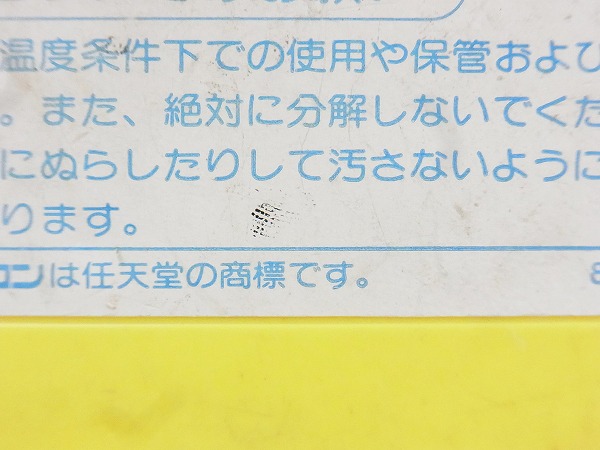 温度条件下での使用や保管およひ
。また、絶対に分解しないでくた
にぬらしたりして汚さないように
ります。
コンは任天堂の商標です。